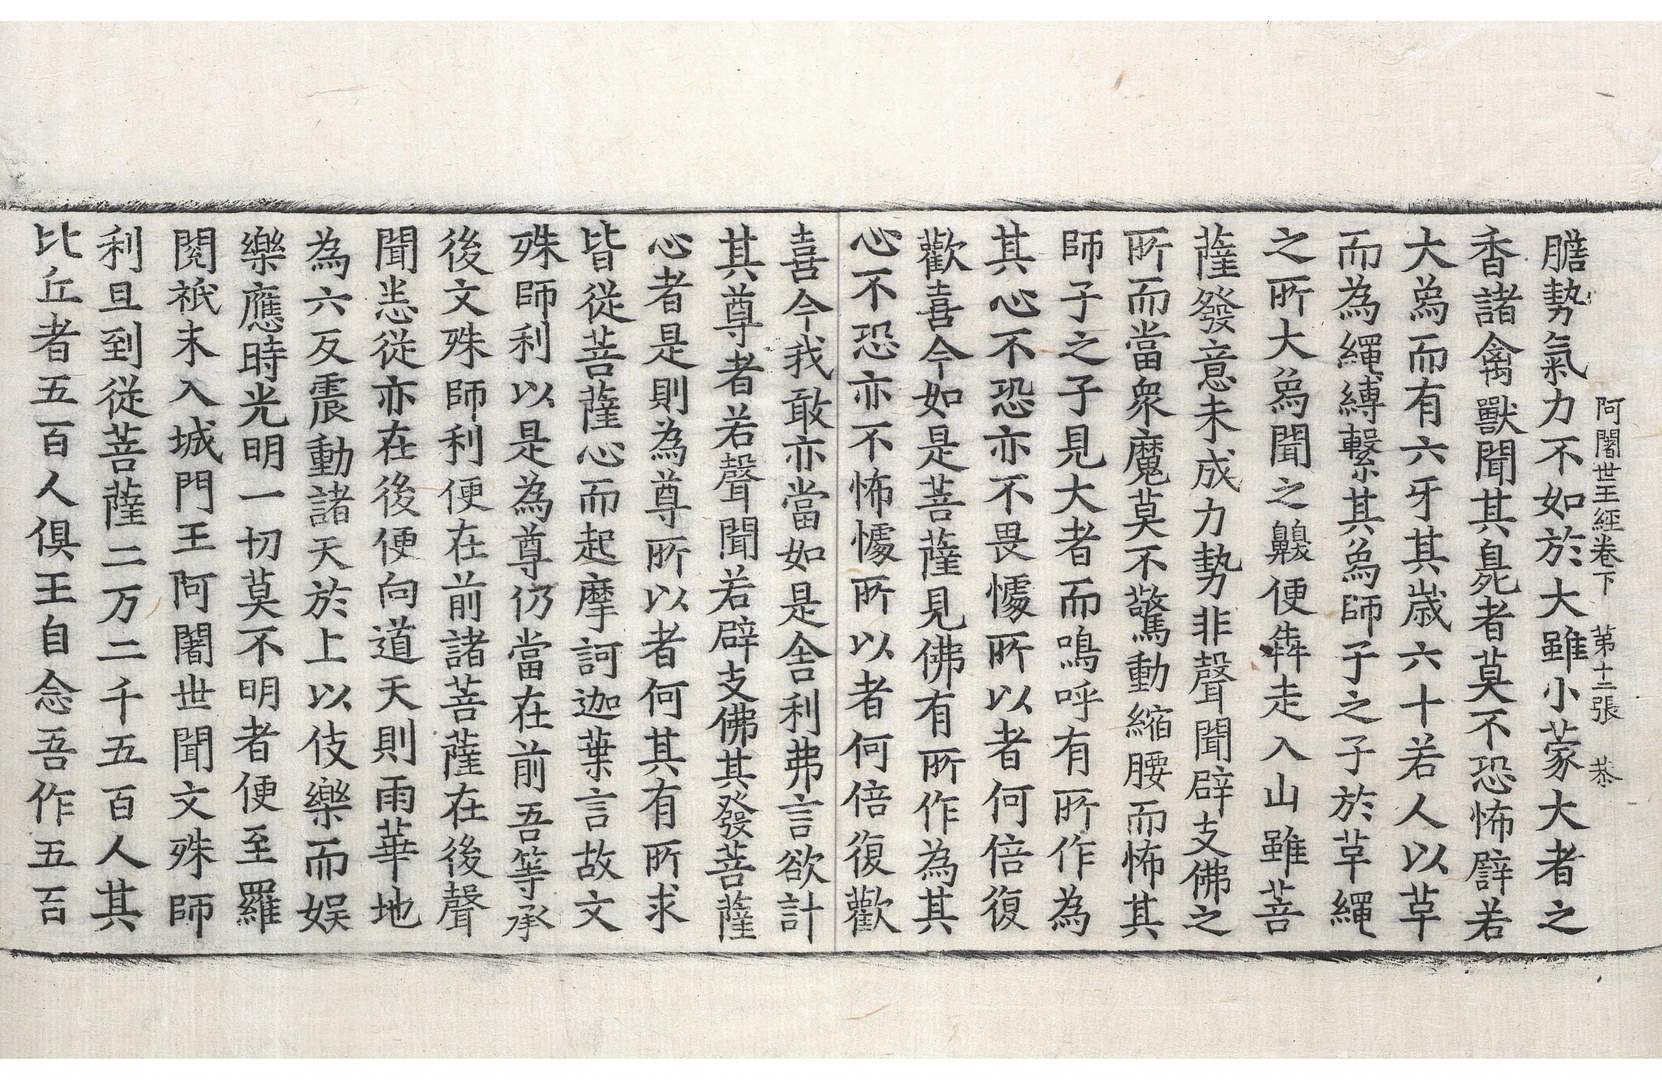 阿闍世王經卷下 第十二張 恭
膽勢氣力不如於大雖小蒙大者之
香諸禽獸聞其臭者莫不恐怖譬若
大爲而有六牙其歲六十若人以草
而為繩縛繫其爲師子之子於草繩
之所大爲聞之齅便犇走入山雖菩
薩發意未成力勢非聲聞辟支佛之
所而當衆魔莫不驚動縮腰而怖其
師子之子見大者而鳴呼有所作為
其心不恐亦不畏懅所以者何倍復
歡喜今如是菩薩見佛有所作為其
心不恐亦不怖懅所以者何倍復歡
喜今我敢亦當如是舍利弗言欲計
其尊者若聲聞若辟支佛其發菩薩
心者是則為尊所以者何其有所求
皆從菩薩心而起摩訶迦葉言故文
殊師利以是為尊仍當在前吾等承
後文殊師利便在前諸菩薩在後聲
聞恙從亦在後便向道天則雨華地
為六反震動諸天於上以伎樂而娛
樂應時光明一切莫不明者便至羅
閱祇末入城門王阿闍世聞文殊師
利旦到從菩薩二万二千五百人其
比丘者五百人俱王自念吾作五百